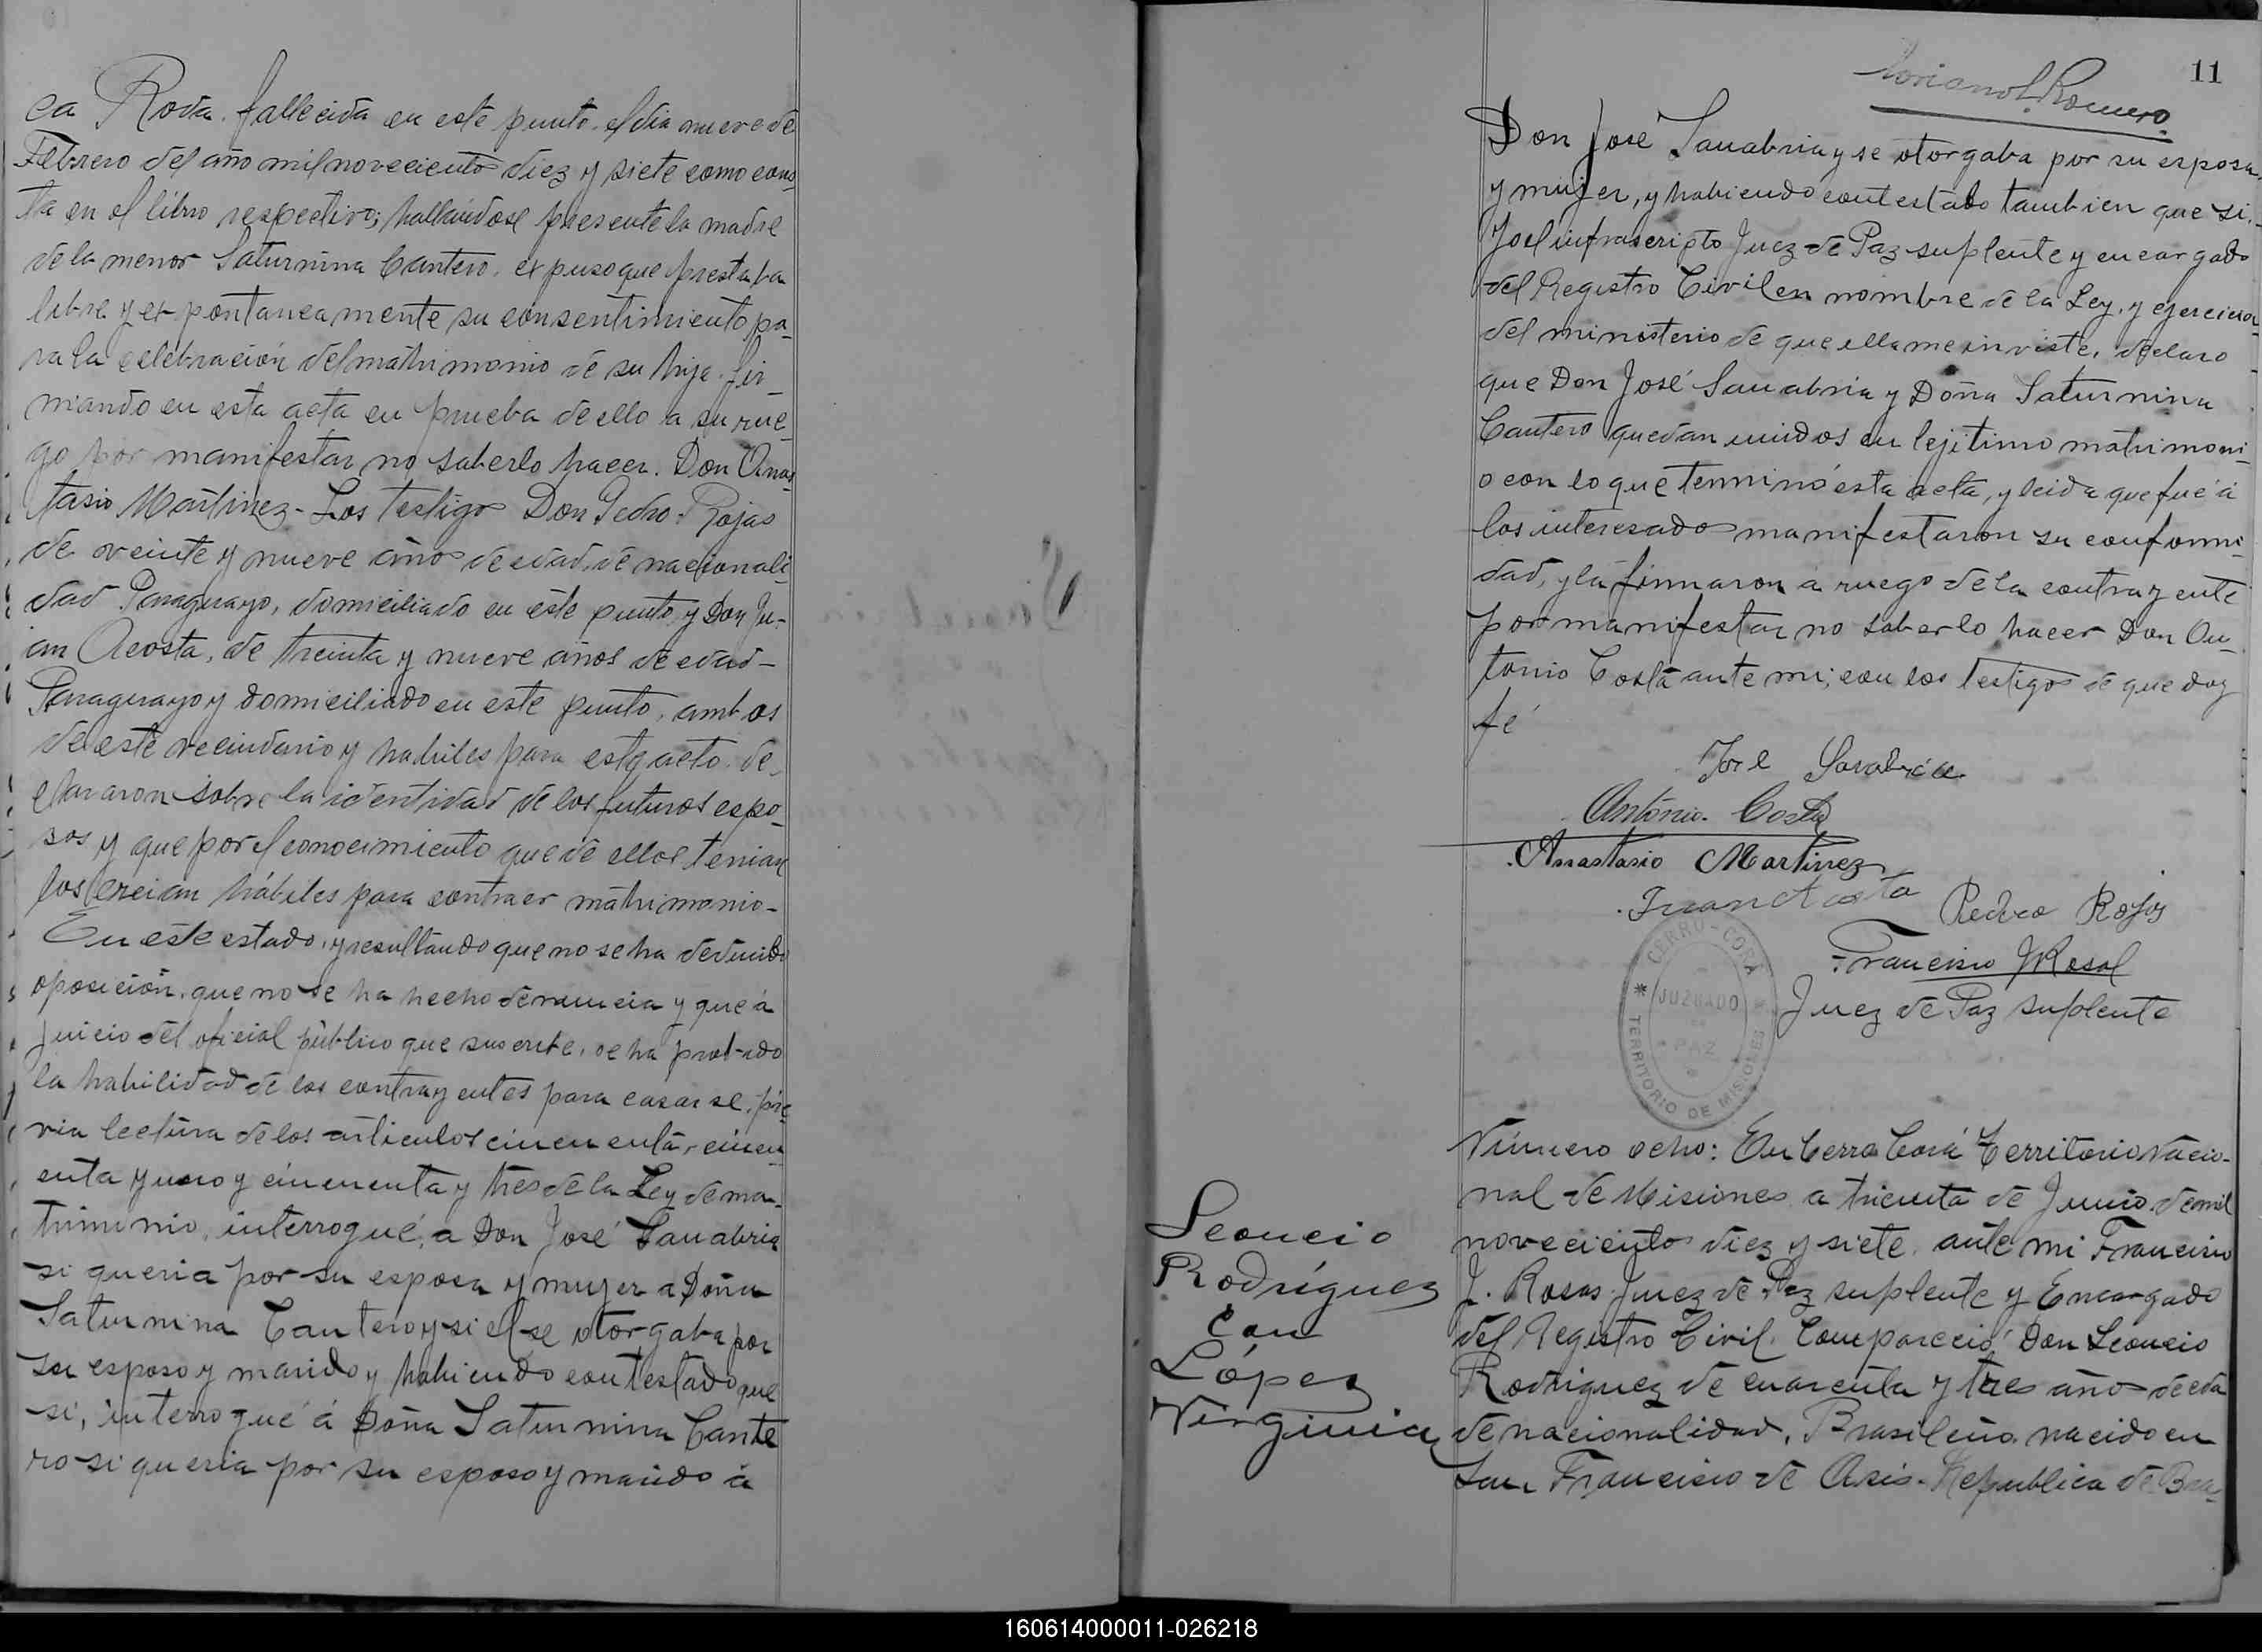 ca Roda. fallecida en este punto. el dia nueve de
Febrero del año mil novecientos diez y siete como cons-
ta en el libro respectivo; hallandose presente la madre
de la menor Saturnina Cantero. expuso que prestaba
libre y expontaneamente su consentimiento pa-
ra la celebración del matrimonio de su hija. fir-
mando en esta acta en prueba de ello a su rue-
go por manifestar no saberlo hacer. Don Anas-
tasio Martinez - Los testigos Don Pedro Rojas
de veinte y nueve años de edad, de nacionali-
dad Paraguayo, domiciliado en este punto, y Don Ju-
an Acosta, de treinta y nueve años de edad -
Paraguayo y domiciliado en este punto, ambos
de este vecindario y habiles para este acto. de-
clararon sobre la identidad de los futuros espo-
sos y que por el conocimiento que de ellos tenian
los creian hábiles para contraer matrimonio -
En este estado, y resultando que no se ha deducido
oposición, que no se ha hecho denuncia y que á
juicio del oficial público que suscribe, se ha probado
la habilidad de los contrayentes para casarse, pre-
via lectura de los articulos cincuenta, cincu-
enta y uno y cincuenta y tres de la Ley de ma-
trimonio, interrogué, a Don José Sanabria
si queria por su esposa y mujer a Doña
Saturnina Cantero y si el se otorgaba por
su esposo y marido y habiendo contestado que
si, interrogué á Doña Saturnina Cante
ro si queria por su esposo y marido á
11
Romero
Don José Sanabria y se otorgaba por su esposa
y mujer, y habiendo contestado tambien que si,-
Yo el infrascripto Juez de Paz suplente y encargado
del Registro Civil en nombre de la Ley, y ejercicio
del ministerio de que ella me inviste, declaro
que Don José Sanabria y Doña Saturnina
Cantero quedan unidos en lejitimo matrimoni-
o con lo que terminó esta acta, y leida que fué á
los interesados manifestaron su conformi-
dad, y la firmaron a ruego de la contrayente
por manifestar no saberlo hacer Don An-
tonio Costa ante mi, con los testigos de que doy
fé
José Sanabria
Antonio Costa
Anastasio Martinez
Juan Acosta
Pedro Rojas
Francisco J Rosas
Juez de Paz suplente
CERRO-CORÁ
JUZGADO
DE
PAZ
TERRITORIO DE MISIONES
Número ocho: En Cerro Corá Territorio Nacio-
nal de Misiones a trienta de Junio de mil
novecientos diez y siete, ante mi Francisco
J. Rosas Juez de Paz suplente y Encargado
del Registro Civil. Compareció Don Leoncio
Rodriguez de cuarenta y tres años de eda
de nacionalidad, Brasileño nacido en
San Francisco de Asis - Republica de Bra-
Leoncio
Rodríguez
con
López
Virginia
160614000011-026218